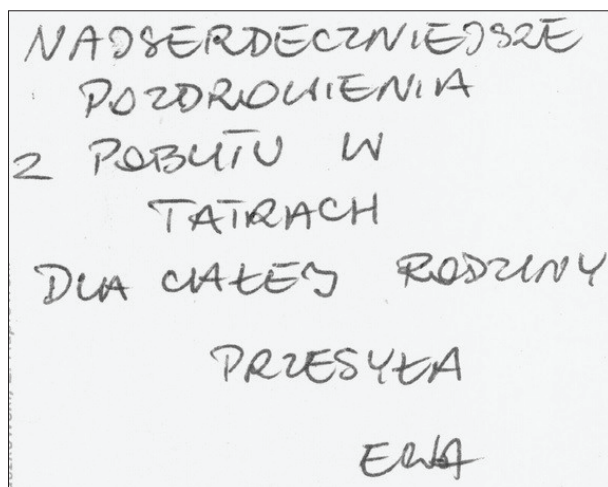 NAJSERDECZNIEJSZE
POZDROWIENIA
Z POBYTU W
TATRACH
DLA CAŁEJ RODZINY
PRZESYŁA
EWA